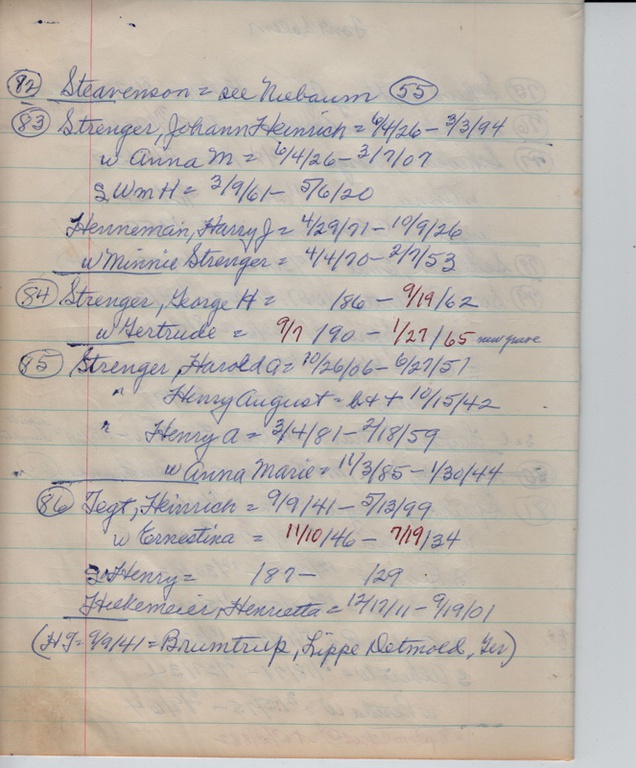 82 Steavenson = see Niebaum 55
83 Strenger, Johann Heinrich = 6/4/26 - 3/3/94
w Anna M = 6/4/26 - 3/7/07
S Wm H = 3/9/61 - 5/6/20
Henneman, Harry J = 4/29/71 - 10/9/26
w Minnie Strenger = 4/4/70 - 2/7/53
84 Strenger, George H = /86 - 9/19/62
w Gertrude = 9/7/90 - 1/27/65 new grave
85 Strenger, Harold A = 10/26/06 - 6/27/51
" Henry August = b++ 10/15/42
" Henry A = 3/4/81 - 2/18/59
w Anna Marie = 11/3/85 - 1/30/44
86 Tegt, Heinrich = 9/9/41 - 5/13/99
w Ernestina = 11/10/46 - 7/19/34
S Henry = /87 - /29
Hiekemeier, Henrietta = 12/17/11 - 9/19/01
(HT = 9/9/41 = Brumtrup, Lippe Detmold, Ger)